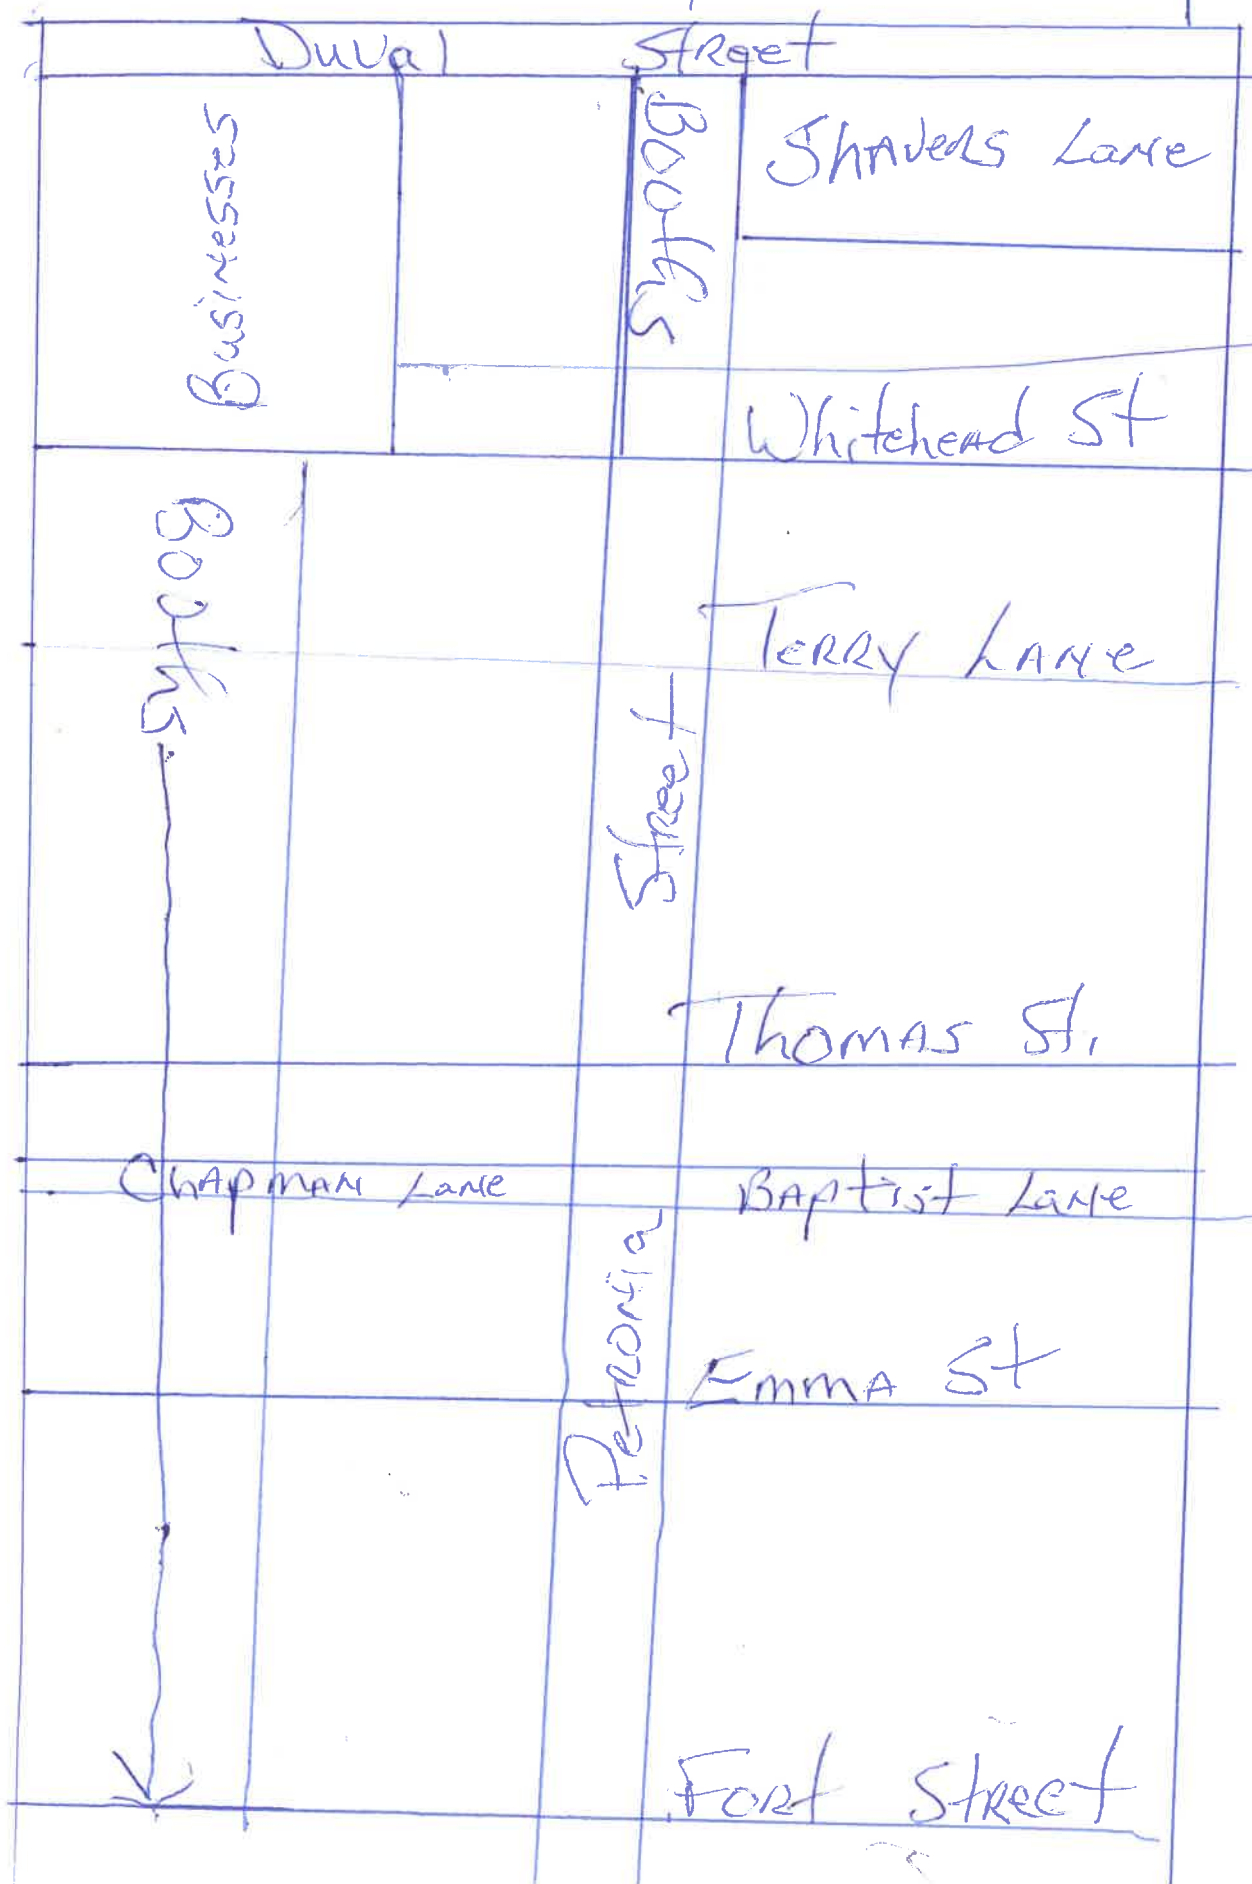 Duval Street
Businesses
Booths
Shavers Lane
Whitehead St
Booths
Terry Lane
Street
Thomas St.
Chapman Lane
Baptist Lane
Petronia
Emma St
Fort Street